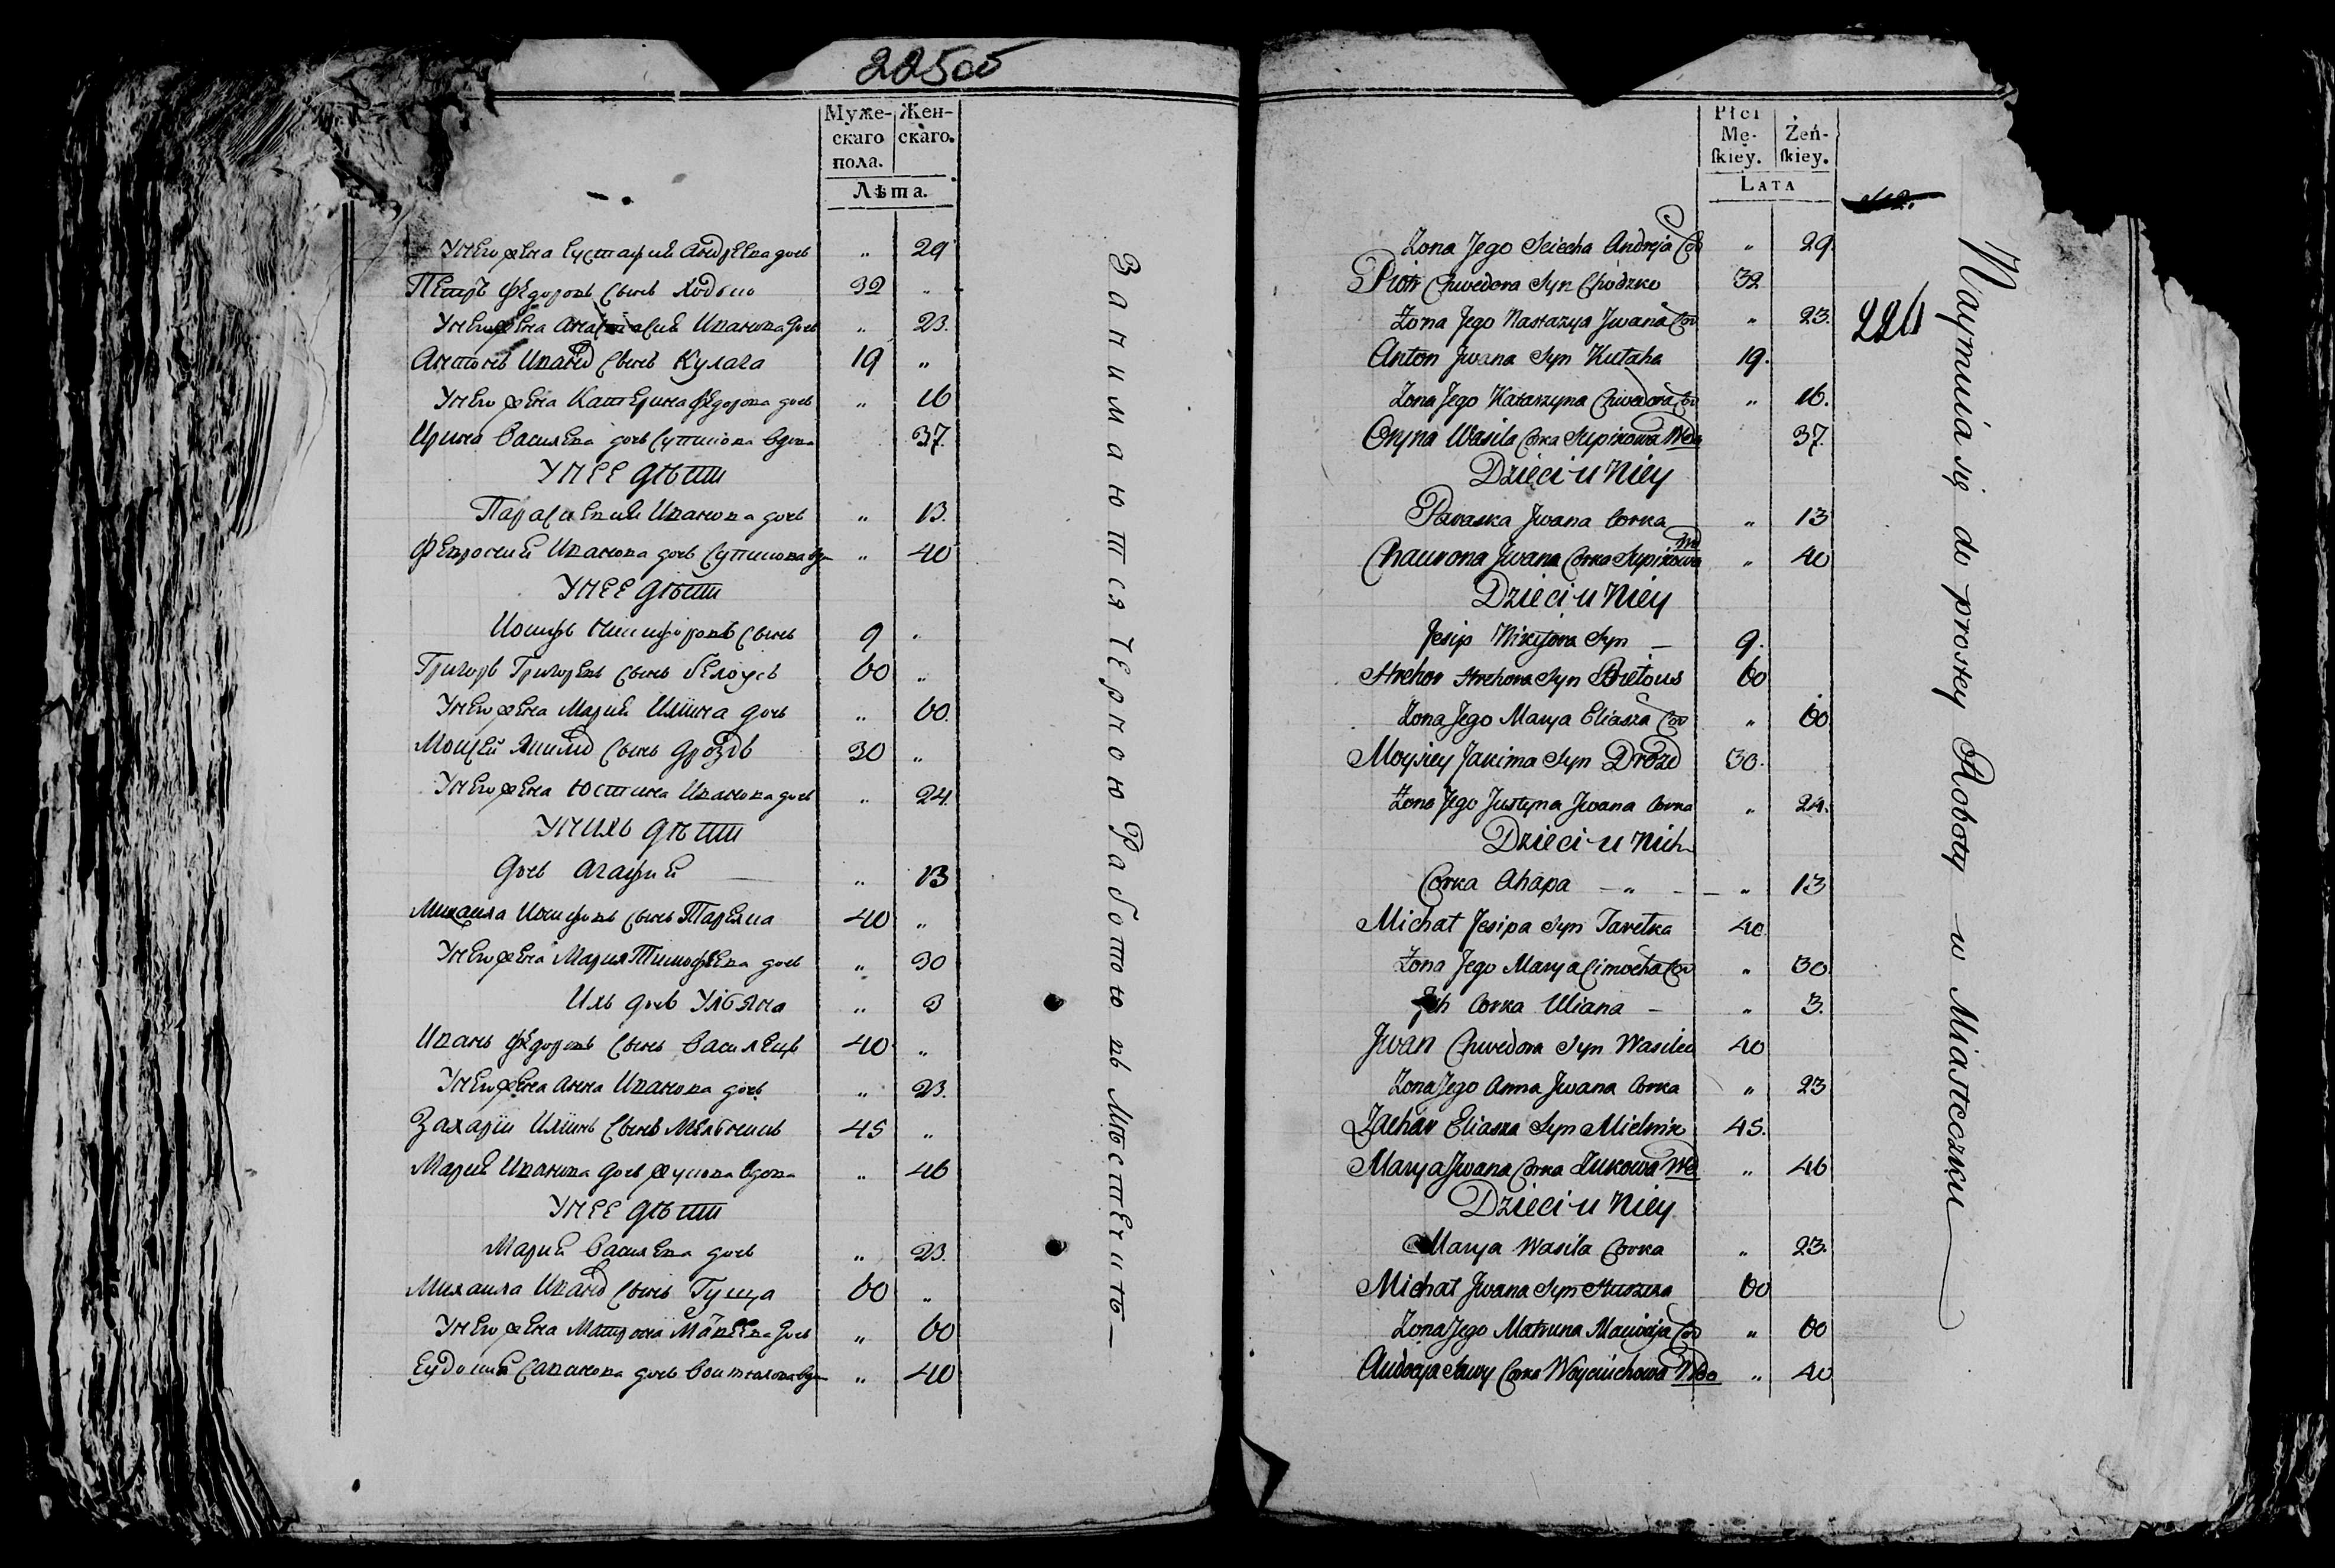 225об
Муже- Жен-
скаго скаго.
пола.
Лѣта.
У него жена Еустафия Андрѣева дочь „ 29
Петръ Федоровъ сынъ Ходько 32 „
У него жена Анастасия Иванова дочь „ 23.
Антонъ Иванов сынъ Кулага 19 „
У него жена Катерина Федорова дочь „ 16
Ирина Васильева дочь Супикова вдова 37.
У нее дѣти
Параскевия Иванова дочь „ 13.
Февросия Иванова дочь Супикова вдо „ 40
У нее дѣти
Иосифъ Никифоровъ сынъ 9 „
Григоръ Григоревъ сынъ Белоусъ 60 „
У него жена Мария Илиина дочь „ 60.
Моисей Якимов сынъ Дроздъ 30 „
У него жена Юстина Иванова дочь „ 24.
У нихъ дѣти
дочь Агафия „ 13
Михаила Иосифовъ сынъ Тарелка 40 „
У него жена Мария Тимофеева дочь „ 30
Ихъ дочь Ульяна „ 3
Иванъ Федоровъ сынъ Василецъ 40 „
У него жена Анна Иванова дочь „ 23.
Захарий Илиинъ сынъ Мельникъ 45 „
Мария Иванова дочь Жукова вдова „ 46
У нее дѣти
Мария Васильева дочь „ 23.
Михаила Иванов сынъ Гуща 60 „
У него жена Матрона Макеева дочь „ 60
Еудокия Савинова дочь Войтюхова вдо „ 40
Занимаются черною Работою въ Мѣстечитѣ —
Płci
Mę- Żeń-
skiey. skiey.
LATA
Żona Jego Sciecha Andreja Cor „ 29.
Piotr Chwedora Syn Chodzko 32
Żona Jego Nastazya Jwana Cor „ 23.
224
Anton Jwana Syn Kułaha 19.
Żona Jego Katarzyna Chwedora Cor „ 16.
Oryna Wasila Corka Supikowa Wdo 37.
Dzieci u Niey
Paraska Jwana Corka „ 13
Chaurona Jwana Corka Supikowa Wd „ 40
Dzieci u Niey
Jesip Nikifora Syn — 9.
Hrehor Hrehora Syn Biełous 60
Żona Jego Marya Eliasza Cor „ 60
Moysiey Jakima Syn Drozd 30.
Żona Jego Justyna Jwana Corka „ 24.
Dzieci u Nich
Corka Ahapa — „ — — „ 13
Michał Jesipa Syn Tarełka 40
Żona Jego Marya Cimocha Cor „ 30.
Jch Corka Uliana — „ 3.
Jwan Chwedora Syn Wasilec 40
Żona Jego Anna Jwana Corka „ 23
Zachar Eliasza Syn Mielnik 45.
Marya Jwana Corka Żukowa Wd „ 46
Dzieci u Niey
Marya Wasila Corka „ 23.
Michał Jwana Syn Huszcza 60
Żona Jego Matruna Macwieja Cor „ 60
Audocya Sawy Corka Woyciuchowa Wdo „ 40
Naymuia się do prostey Roboty w Miasteczku